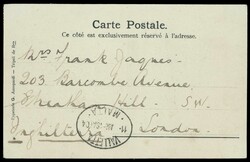 Carte Postale.
Ce côté est exclusivement réservé à l'adresse.
Mrs Frank Jaques
203 Barcombe Avenue,
Streatham Hill. S.W.
London.
VALLETTA
MALTA